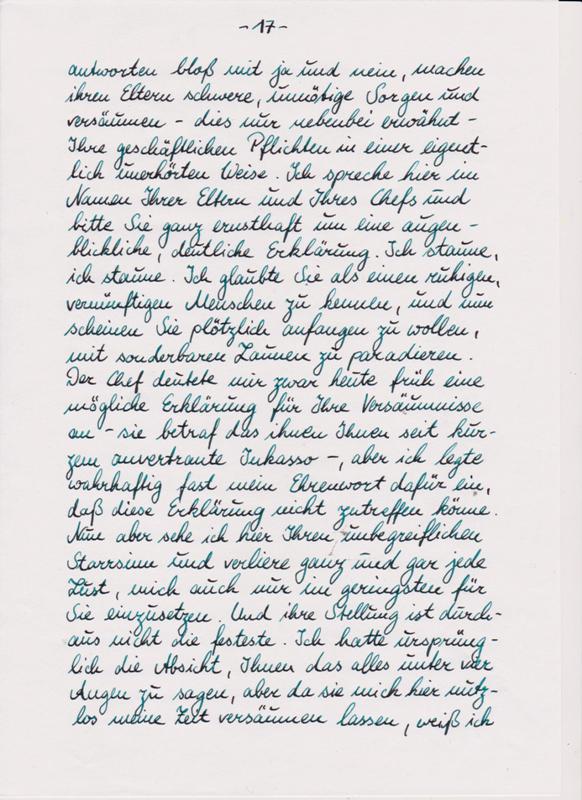 - 17 -
antworten bloß mit ja und nein, machen
ihren Eltern schwere, unnötige Sorgen und
versäumen - dies nur nebenbei erwähnt -
Ihre geschäftlichen Pflichten in einer eigent-
lich unerhörten Weise. Ich spreche hier im
Namen Ihrer Eltern und Ihres Chefs und
bitte Sie ganz ernsthaft um eine augen-
blickliche, deutliche Erklärung. Ich staune,
ich staune. Ich glaubte Sie als einen ruhigen,
vernünftigen Menschen zu kennen, und nun
scheinen Sie plötzlich anfangen zu wollen,
mit sonderbaren Launen zu paradieren.
Der Chef deutete mir zwar heute früh eine
mögliche Erklärung für Ihre Versäumnisse
an - sie betraf das ihnen Ihnen seit kur-
zem anvertraute Inkasso -, aber ich legte
wahrhaftig fast mein Ehrenwort dafür ein,
daß diese Erklärung nicht zutreffen könne.
Nun aber sehe ich hier Ihren unbegreiflichen
Starrsinn und verliere ganz und gar jede
Lust, mich auch nur im geringsten für
Sie einzusetzen. Und ihre Stellung ist durch-
aus nicht die festeste. Ich hatte ursprüng-
lich die Absicht, Ihnen das alles unter vier
Augen zu sagen, aber da sie mich hier nutz-
los meine Zeit versäumen lassen, weiß ich